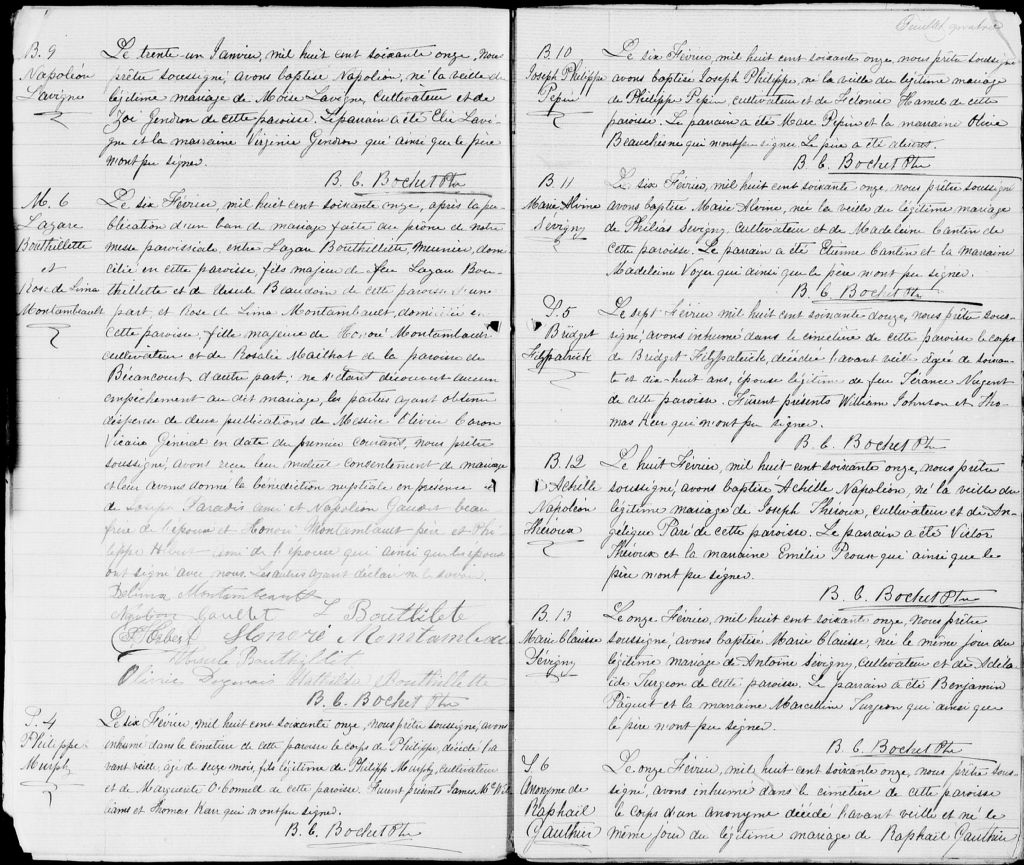 B. 9
Napoléon
Lavigne
Le trente-un Janvier, mil huit cent soixante onze, nous
prêtre soussigné avons baptisé Napoléon, né la veille du
légitime mariage de Moïse Lavigne, cultivateur et de
Zoé Gendron de cette paroisse. Le parrain a été Elie Lavi-
gne et la marraine Virginie Gendron qui ainsi que le père
n'ont pu signer.
B. C. Bochet Ptre
M. 6
Lazare
Bouthillette
et
Rose de Lima
Montambeault
Le six Février, mil huit cent soixante onze, après la pu-
blication d'un ban de mariage faite au prône de notre
messe paroissiale, entre Lazare Bouthillette, Meunier, dom-
cilié en cette paroisse, fils majeur de feu Lazare Bou-
thillette et de Ursule Beaudoin de cette paroisse d'une
part et Rose de Lima Montambault, domiciliée en
cette paroisse, fille majeure de Honoré Montambault
cultivateur et de Rosalie Mailhot de la paroisse de
Bécancourt, d'autre part; ne s'étant découvert aucun
empêchement au dit mariage, les parties ayant obtenu
dispense de deux publications de Messire Olivier Caron
Vicaire Général en date du premier courant, nous prêtre
soussigné, avons reçu leur mutuel consentement de mariage
et leur avons donné la bénédiction nuptiale en présence
de Joseph Paradis ami et Napoléon Gaudet beau
frère de l'époux et Honoré Montambault père et Phi-
lippe Hébert ami de l'épouse qui ainsi que les époux
ont signé avec nous. Les autres ayant déclaré ne le savoir.
Delima Montambeault
Napoleon Gaudet L Bouthilete
P. Hebert Honoré Montambeau
Ursule Bouthillet
Olivine Mathilde Bouthillette
B. C. Bochet Ptre
S. 4
Philippe
Murphy
Le six Février, mil huit cent soixante onze, nous prêtre soussigné, avons
inhumé dans le cimetière de cette paroisse le corps de Philippe, décédé l'a-
vant veille, âgé de seize mois, fils légitime de Philippe Murphy, cultivateur
et de Marguerite O'Connell de cette paroisse. Furent présents James McWil-
liams et Thomas Karr qui n'ont pu signer.
B. C. Bochet Ptre
Feuillet quatrième
B. 10
Joseph Philippe
Pepin
Le six Février, mil huit cent soixante onze, nous prêtre soussigné
avons baptisé Joseph Philippe, né la veille du légitime mariage
de Philippe Pepin, cultivateur et de Hélonise Hamel de cette
paroisse. Le parrain a été Marc Pepin et la marraine Olivie
Beauchesne qui n'ont pu signer. Le père a été absent.
B. C. Bochet Ptre
B. 11
Marie Alvine
Sévigny
Le six Février, mil huit cent soixante onze, nous prêtre soussigné
avons baptisé Marie Alvine, née la veille du légitime mariage
de Philias Sevigny, cultivateur et de Madeleine Cantin de
cette paroisse. Le parrain a été Etienne Cantin et la marraine
Madeleine Voyer qui ainsi que le père n'ont pu signer.
B. C. Bochet Ptre
S. 5
Bridget
Fitzpatrick
Le sept Février mil huit cent soixante douze, nous prêtre sous-
signé, avons inhumé dans le cimetière de cette paroisse le corps
de Bridget Fitzpatrick, décédée l'avant veille âgée de soixan-
te et dix-huit ans, épouse légitime de feu Térance Nugent
de cette paroisse. Furent présents William Johnson et Tho-
mas Keer qui n'ont pu signer.
B. C. Bochet Ptre
B. 12
Achille
Napoléon
Théroux
Le huit Février, mil huit cent soixante onze, nous prêtre
soussigné, avons baptisé Achille Napoléon, né la veille du
légitime mariage de Joseph Théroux, cultivateur et de An-
gélique Paré de cette paroisse. Le parrain a été Victor
Théroux et la marraine Emélie Proux qui ainsi que le
père n'ont pu signer.
B. C. Bochet Ptre
B. 13
Marie Claisse
Sevigny
Le onze Février, mil huit cent soixante onze, nous prêtre
soussigné, avons baptisé Marie Claisse, née le même jour du
légitime mariage de Antoine Sévigny, cultivateur et de Adela-
ide Turgeon de cette paroisse. Le parrain a été Benjamin
Pâquet et la marraine Marcelline Turgeon qui ainsi que
le père n'ont pu signer.
B. C. Bochet Ptre
S. 6
Anonyme de
Raphaïl
Gauthier
Le onze Février, mil huit cent soixante onze, nous prêtre sous-
signé, avons inhumé dans le cimetière de cette paroisse
le corps d'un anonyme décédé l'avant veille et né le
même jour du légitime mariage de Raphaïl Gauthier